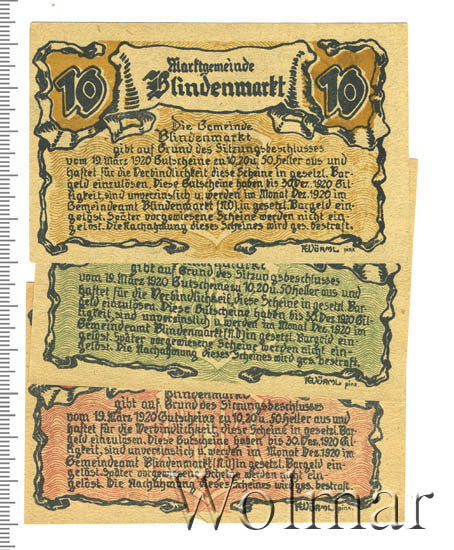 Marktgemeinde
10 Blindenmarkt 10
Die Gemeinde
Blindenmarkt
gibt auf Grund des Sitzungsbeschlusses
vom 19. März 1920 Gutscheine zu 10, 20 u. 50 Heller aus und
haftet für die Verbindlichkeit diese Scheine in gesetzl. Bar-
geld einzulösen. Diese Gutscheine haben bis 30. Dez. 1920 Gil-
tigkeit, sind unverzinslich u. werden im Monat Dez. 1920 im
Gemeindeamt Blindenmarkt (N.Ö.) in gesetzl. Bargeld ein-
gelöst. Später vorgewiesene Scheine werden nicht ein-
gelöst. Die Nachahmung dieses Scheines wird ges. bestraft.
gibt auf Grund des Sitzungsbeschlusses
vom 19. März 1920 Gutscheine zu 10, 20 u. 50 Heller aus und
haftet für die Verbindlichkeit, diese Scheine in gesetzl. Bar-
geld einzulösen. Diese Gutscheine haben bis 30. Dez. 1920 Gil-
tigkeit, sind unverzinslich u. werden im Monat Dez. 1920 im
Gemeindeamt Blindenmarkt (N.Ö.) in gesetzl. Bargeld ein-
gelöst. Später vorgewiesene Scheine werden nicht ein-
gelöst. Die Nachahmung dieses Scheines wird ges. bestraft.
Blindenmarkt
gibt auf Grund des Sitzungsbeschlusses
vom 19. März 1920 Gutscheine zu 10, 20 u. 50 Heller aus und
haftet für die Verbindlichkeit diese Scheine in gesetzl. Bar-
geld einzulösen. Diese Gutscheine haben bis 30. Dez. 1920 Gil-
tigkeit, sind unverzinslich u. werden im Monat Dez. 1920 im
Gemeindeamt Blindenmarkt (N.Ö.) in gesetzl. Bargeld ein-
gelöst. Später vorgewiesene Scheine werden nicht ein-
gelöst. Die Nachahmung dieses Scheines wird ges. bestraft.
Wolmar